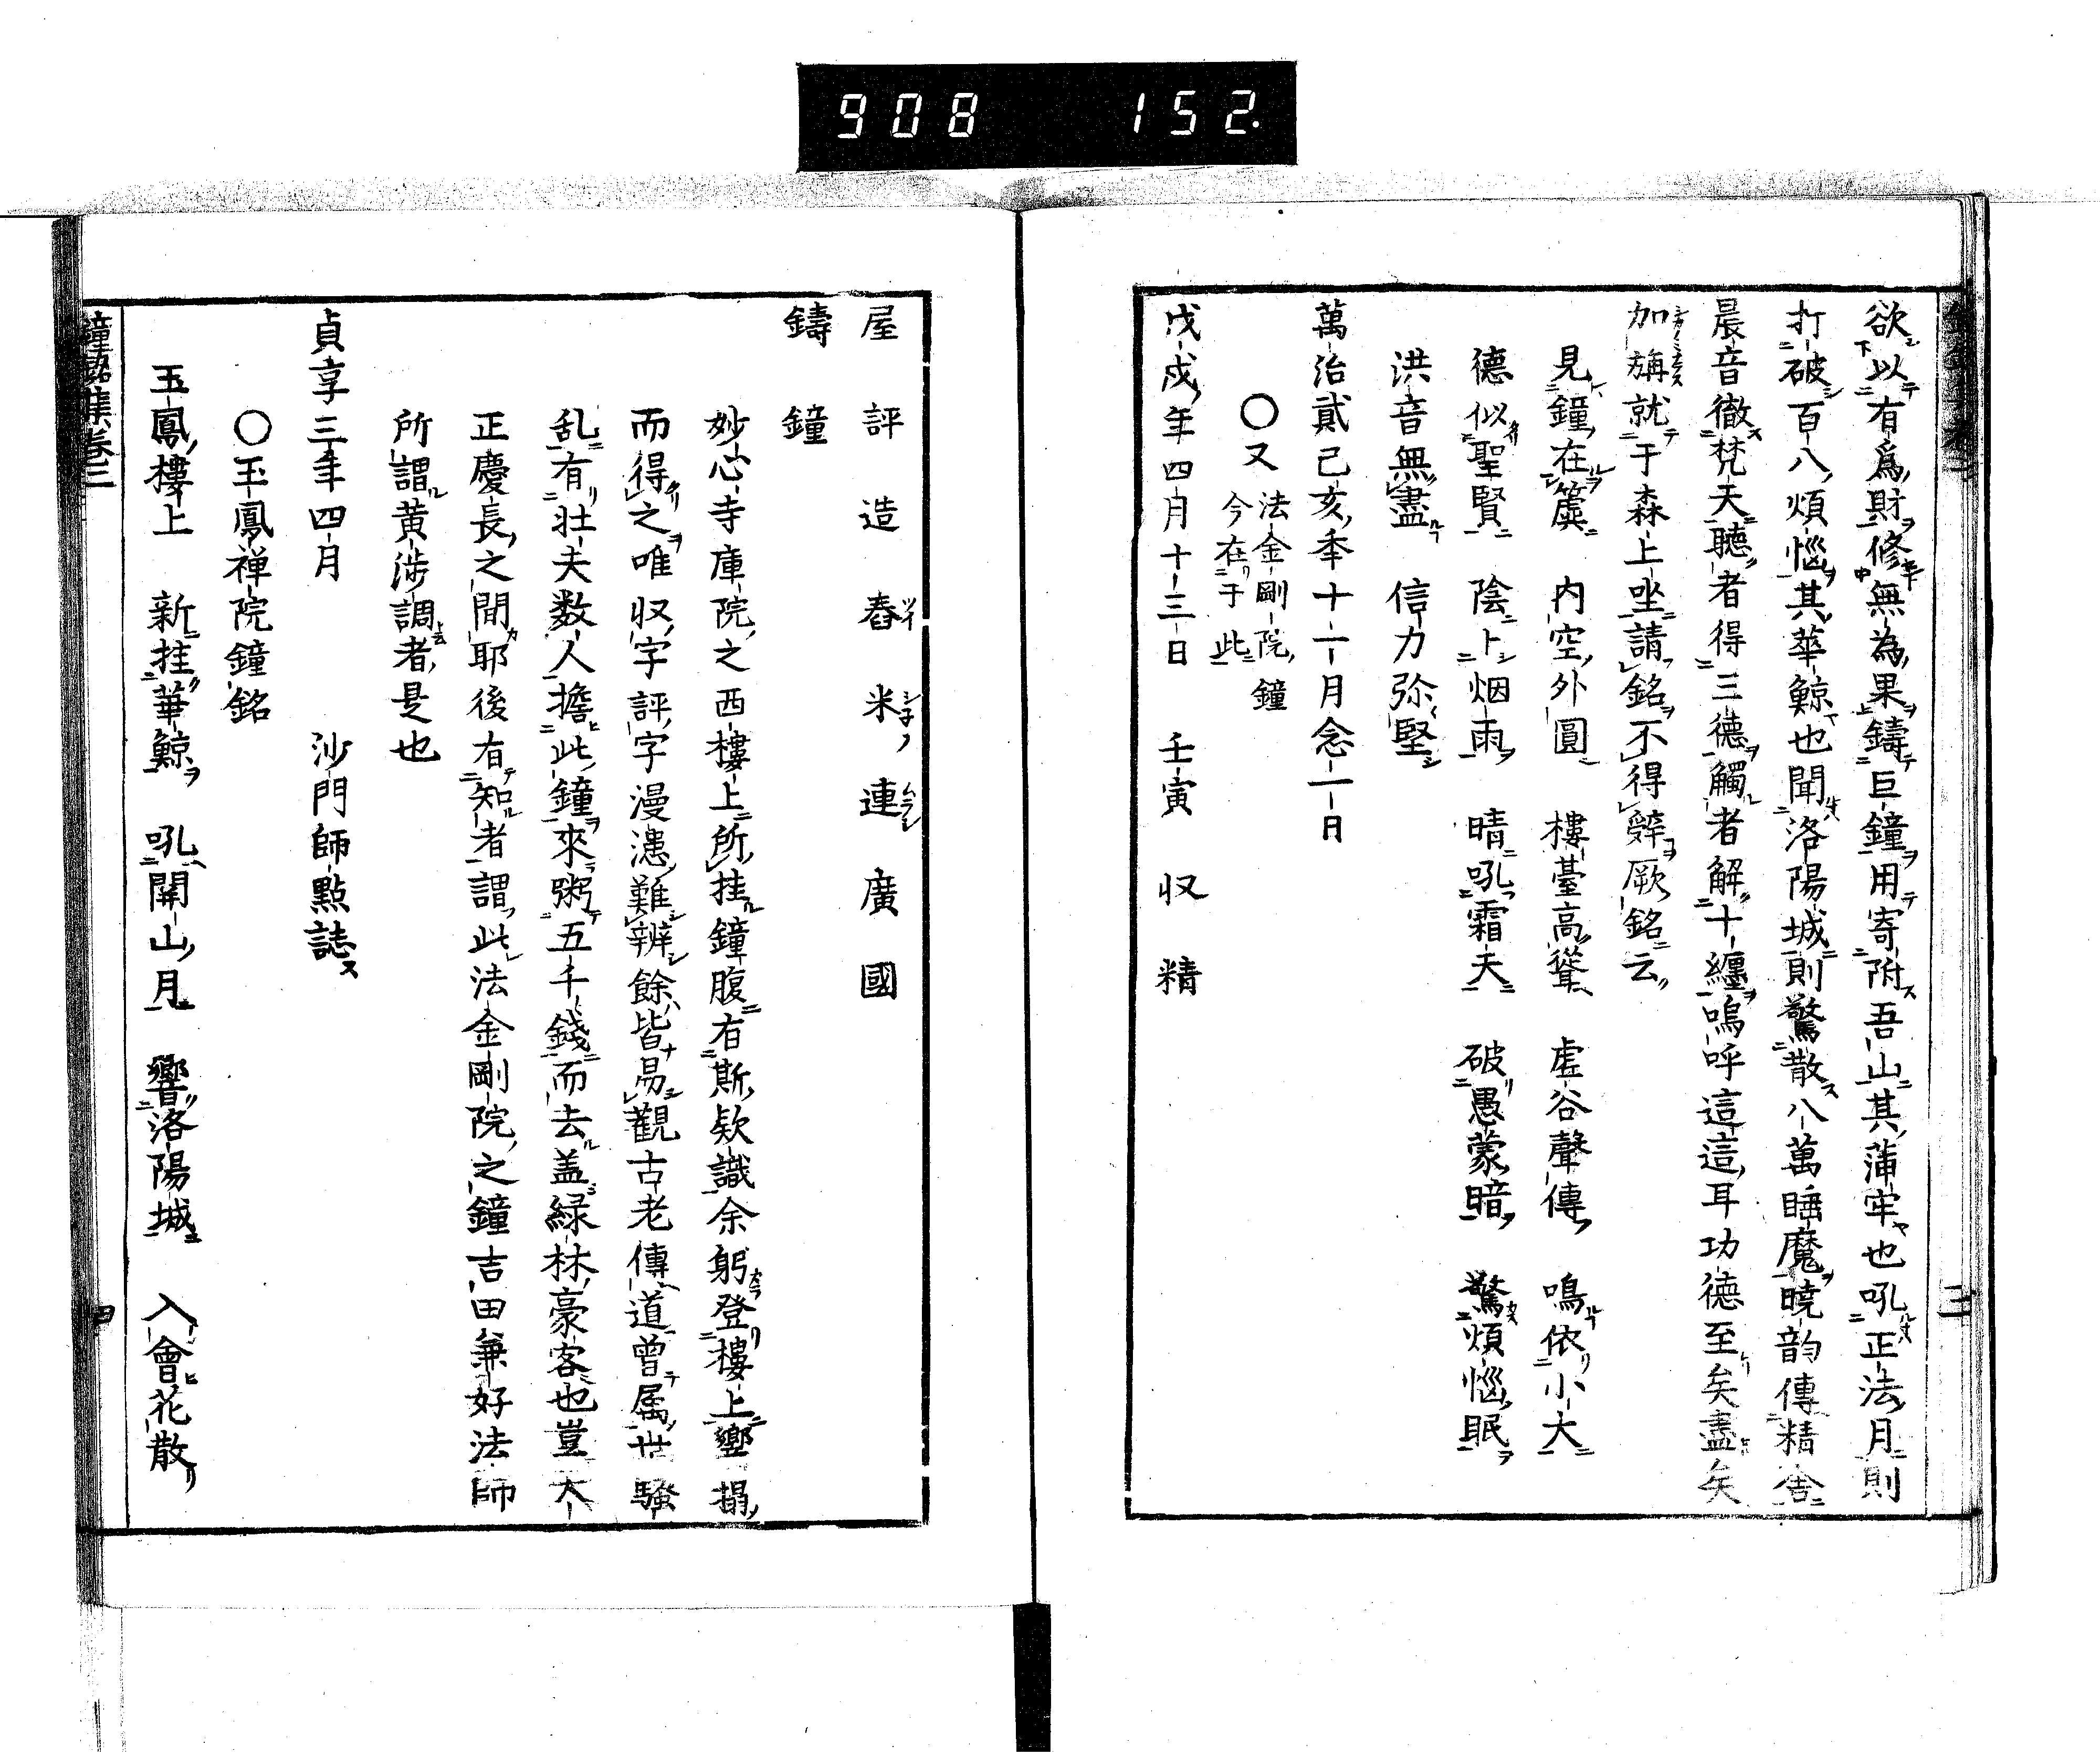 908 152.
欲以有爲財修無為果鑄巨鐘用寄附吾山其蒲牢也吼正法月則
打破百八煩惱其華鯨也聞洛陽城則驚散八萬睡魔曉韵傳精舎
晨音徹梵天聽者得三德觸者解十纏嗚呼這這耳功德至矣盡矣
加旃就于森上坐請銘不得辤厥銘云
見鐘在簴 内空外圓 樓臺高聳 虚谷聲傳 鳴依小大
德似聖賢 陰上烟雨 晴吼霜天 破愚蒙暗 驚煩惱眠
洪音無盡 信力弥堅
萬治貳己亥年十一月念一日
〇又 法金剛院鐘
今在于此
戊戌年四月十三日 壬寅 収 精
屋評造舂米連廣國
鑄鐘
妙心寺庫院之西樓上所挂鐘腹有斯欵識余躬登樓上嚮搨
而得之唯収字評字漫漶難辨餘皆易觀古老傳道曽属世騒
乱有壮夫数人擔此鐘來粥五千錢而去盖緑林豪客也豈天
正慶長之間耶後有知者謂此法金剛院之鐘吉田兼好法師
所謂黄渉調者是也
貞享三年四月 沙門師點誌
〇玉鳳禅院鐘銘
玉鳳樓上 新挂華鯨 吼開山月 響洛陽城 入會花散
鐘銘集巻三
四